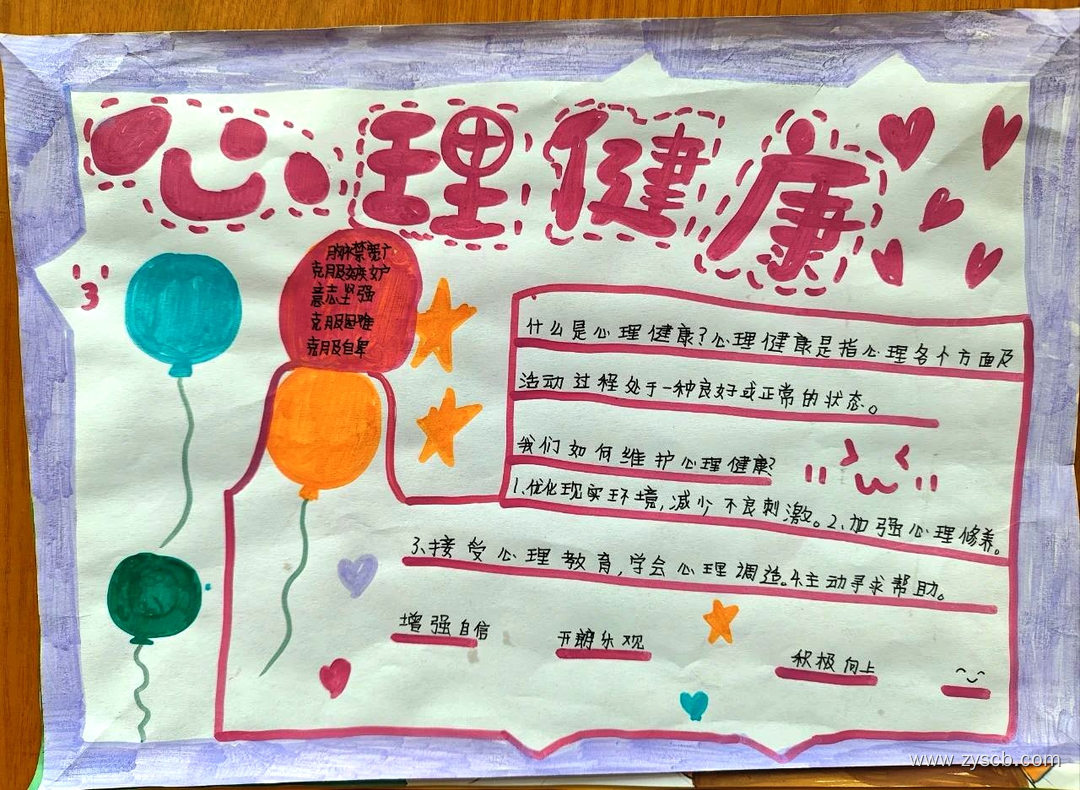 心理健康
胸襟宽广
克服嫉妒
意志坚强
克服困难
克服自卑
什么是心理健康?心理健康是指心理各个方面及
活动过程处于一种良好或正常的状态。
我们如何维护心理健康?
1.优化现实环境,减少不良刺激。2.加强心理修养。
3.接受心理教育,学会心理调适。4.主动寻求帮助。
增强自信
开朗乐观
积极向上
www.zyscb.com